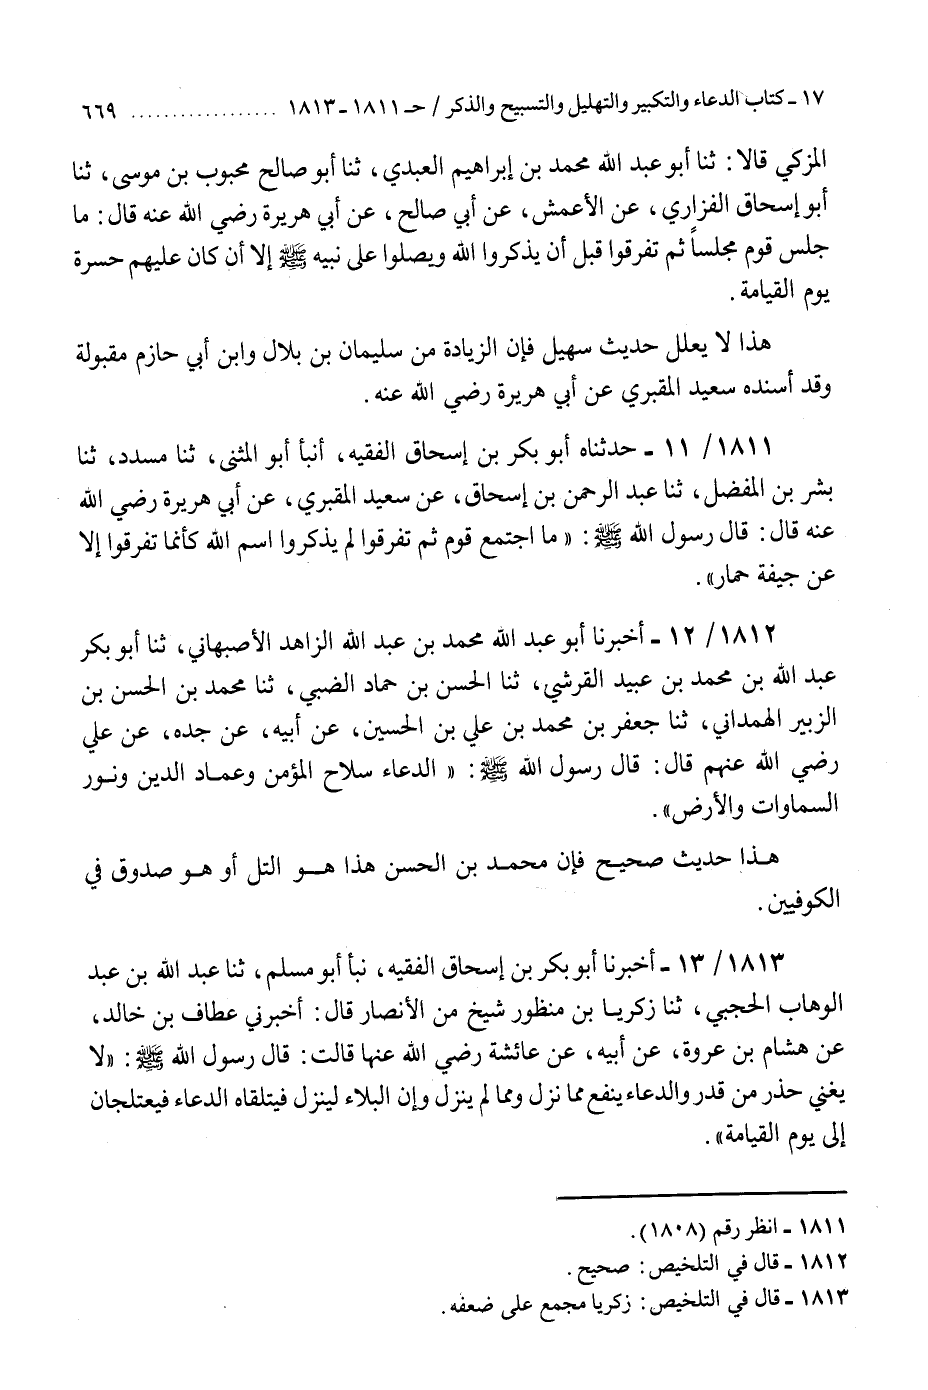 ١٧ ـ كتاب الدعاء والتكبير والتهليل والتسبيح والذكر / حـ ١٨١١ - ١٨١٣ .................. ٦٦٩
المزكي قالا: ثنا أبو عبد الله محمد بن إبراهيم العبدي، ثنا أبو صالح محبوب بن موسى، ثنا
أبو إسحاق الفزاري، عن الأعمش، عن أبي صالح، عن أبي هريرة رضي الله عنه قال: ما
جلس قوم مجلساً ثم تفرقوا قبل أن يذكروا الله ويصلوا على نبيه ﷺ إلا أن كان عليهم حسرة
يوم القيامة.
هذا لا يعلل حديث سهيل فإن الزيادة من سليمان بن بلال وابن أبي حازم مقبولة
وقد أسنده سعيد المقبري عن أبي هريرة رضي الله عنه.
١٨١١/ ١١ ـ حدثناه أبو بكر بن إسحاق الفقيه، أنبأ أبو المثنى، ثنا مسدد، ثنا
بشر بن المفضل، ثنا عبد الرحمن بن إسحاق، عن سعيد المقبري، عن أبي هريرة رضي الله
عنه قال: قال رسول الله ﷺ: « ما اجتمع قوم ثم تفرقوا لم يذكروا اسم الله كأنما تفرقوا إلا
عن جيفة حمار».
١٨١٢/ ١٢ ـ أخبرنا أبو عبد الله محمد بن عبد الله الزاهد الأصبهاني، ثنا أبو بكر
عبد الله بن محمد بن عبيد القرشي، ثنا الحسن بن حماد الضبي، ثنا محمد بن الحسن بن
الزبير الهمداني، ثنا جعفر بن محمد بن علي بن الحسين، عن أبيه، عن جده، عن علي
رضي الله عنهم قال: قال رسول الله ﷺ: « الدعاء سلاح المؤمن وعماد الدين ونور
السماوات والأرض».
هذا حديث صحيح فإن محمد بن الحسن هذا هو التل أو هو صدوق في
الكوفيين.
١٨١٣/ ١٣ ـ أخبرنا أبو بكر بن إسحاق الفقيه، نبأ أبو مسلم، ثنا عبد الله بن عبد
الوهاب الحجبي، ثنا زكريا بن منظور شيخ من الأنصار قال: أخبرني عطاف بن خالد،
عن هشام بن عروة، عن أبيه، عن عائشة رضي الله عنها قالت: قال رسول الله ﷺ: «لا
يغني حذر من قدر والدعاء ينفع مما نزل ومما لم ينزل وإن البلاء لينزل فيتلقاه الدعاء فيعتلجان
إلى يوم القيامة».
١٨١١ ـ انظر رقم (١٨٠٨).
١٨١٢ ـ قال في التلخيص: صحيح.
١٨١٣ ـ قال في التلخيص: زكريا مجمع على ضعفه.